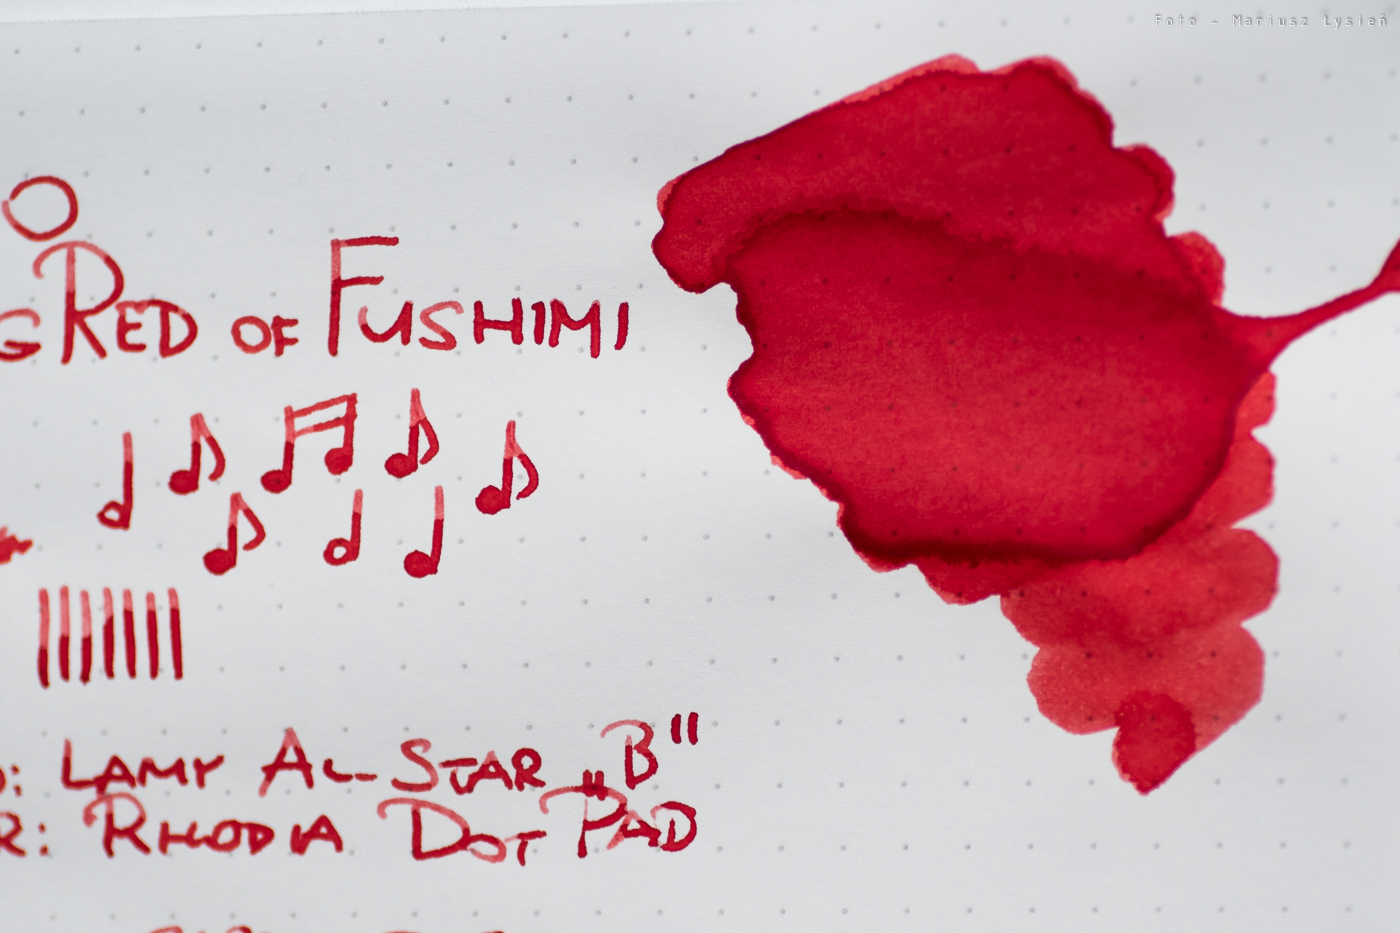 Foto - Mariusz Łysień
O
G RED OF FUSHIMI
D: LAMY AL-STAR „B"
R: RHODIA DOT PAD